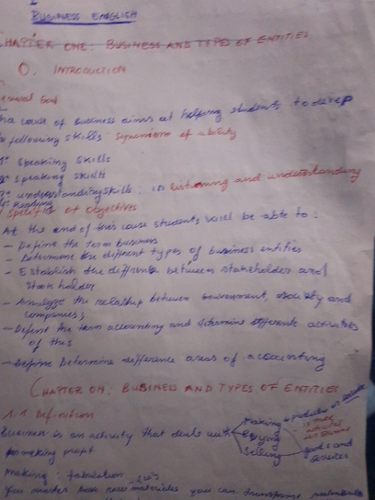 BUSINESS ENGLISH
CHAPTER ONE: BUSINESS AND TYPE OF ENTITIES
0. INTRODUCTION
General Goal
The course of Business aims at helping students to develop
the following skills: Expansions of ability
1° Speaking skills
2° Speaking skills
3° understanding skills: in listening and understanding
4° Reading
Specifics of Objectives
At the end of this course students will be able to:
- Define the term business
- Determine the different types of business entities
- Establish the difference between stakeholder and
Stock holder
- Analyze the relatship between Government, society and
companies;
- Define the term accounting and determine different activities
of this
- Define Determine difference areas of accounting
CHAPTER ON: BUSINESS AND TYPES OF ENTITIES
1.1 Definition
Business is an activity that deals with
making
Buying
Selling
goods and
services
for making
making: fabrication
You master raw materials you can transform